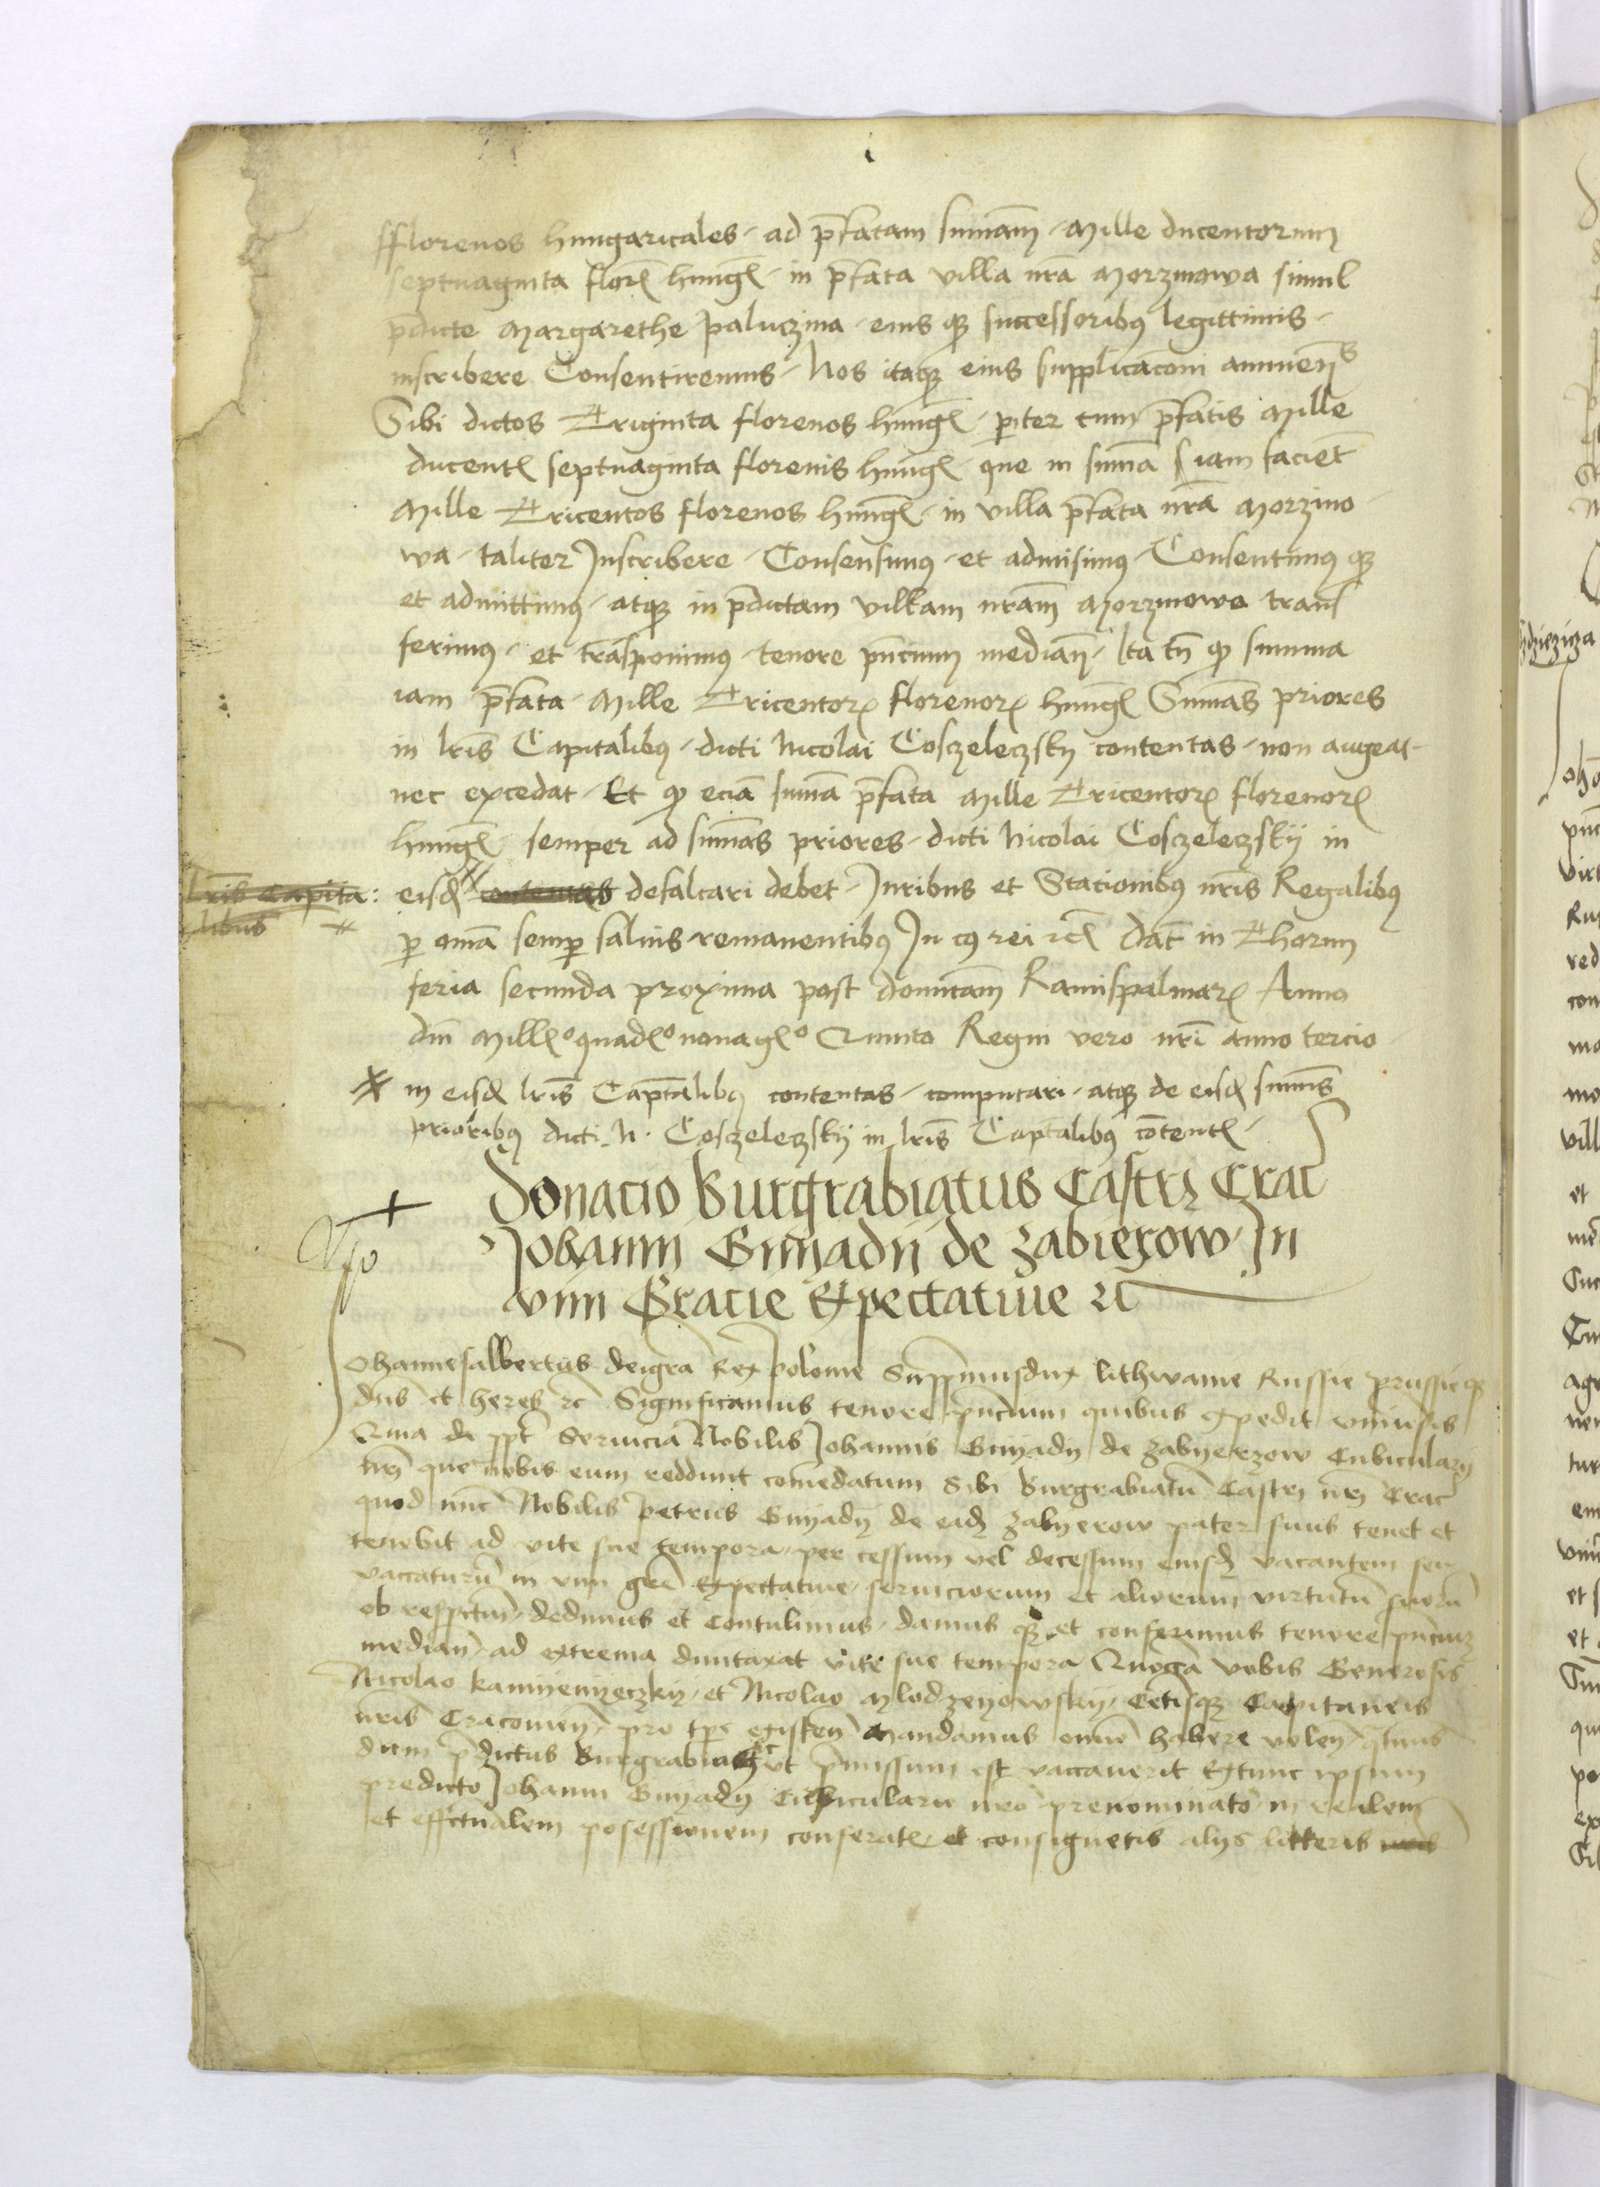 fflorenos hungaricales ad p̄fatam sum̄am Mille ducentorum
septuaginta floreñ hungꝭ in p̄fata villa nr̄a Morzinowa simul
p̄dicte Margarethe paluczina eius qꝫ successoribꝰ legittimis
inscribere Consentiremus Nos itaqꝫ eius supplicac̄oni annuen̄s
Sibi dictos Triginta florenos hungꝭ pariter cum p̄fatis Mille
ducentꝭ septuaginta florenis hungꝭ que in sum̄a iam faciēt
Mille Tricentos florenos hungꝭ in villa p̄fata nr̄a Morzino
wa taliter Inscribere Consensimꝰ et admisimꝰ Consentimꝰ qꝫ
et admittimꝰ atqꝫ in p̄dictam villam nr̄am Morzinowa trans
ferimꝰ et trāsponimꝰ tenore p̄ncium median̄ Ita tn̄ qꝫ summa
iam p̄fata Mille Tricentorꝭ florenorꝭ hungꝭ Sum̄as priores
in lr̄is Capitalibꝰ dicti Nicolai Coszeleczsky contentas non augeat
nec excedat Et qꝫ eciā sum̄a p̄fata Mille Tricentorꝭ florenorꝭ
hungꝭ semper ad sum̄as priores dicti Nicolai Coszeleczskij in
lr̄is Capita: eisdꝭ contentas defalcari debet Iuribus et Stacionibꝰ nr̄is Regalibꝰ
libus
p om̄ā semp saluis remanentibꝰ In cꝰ rei rc̄ꝭ Dat̄ in Thorun
feria secunda proxima post domīcam Ramispalmarꝭ Anno
dn̄i Millꝭo quadꝭo nonagꝭo Quinto Regni vero nr̄i anno tercio
in eisdꝭ lr̄is Cap̄talibꝰ contentas computari atqꝫ de eisdꝭ sum̄is
prioribꝰ dicti N. Coszeleczskij in lr̄is Captalibꝰ cōtentꝭ
Donacio Burgrabiatus Castrj Crac
Johanni Gnyadij de Zabierzow In
vim Gracie Expectatiue rc̄
Johannesalbertus deigr̄a Rex polonie Supp̄musdux lithwanie Russie prussie qꝫ
dn̄s et heres rc̄ Significamus tenore p̄ncium quibus expedit vniūsis
Quia de p̄pt̄ Seruiciā Nobilis Johannis Gnyady de Zabyerzow Cubicularij
nr̄i que nobis eum reddunt com̄edatum Sibi Burgrabiatū Castrj nrj Crac
quod nūc Nobilis Petrus Gnyady de eadꝭ Zabyerow pater suus tenet et
tenebit ad vite sue tempora per cessum vel decessum eiusdꝭ vacantem seu
vaccaturū in vim gr̄e Expectatiue seruiciorum et aliorum virtutū suorū
ob respectū dedimus et Contulimus damus qꝫ et conferimus tenore p̄ncium
median̄ ad extrema duntaxat vite sue tempora Quoca vobis Generosis
Nicolao Kamyenyeczky et Nicolao Mlodzyeyowsky Cet̄isqꝫ Capitaneis
nr̄is Cracovien̄ pro tp̄e existen̄ Mandamus om̄īo habere volen̄ q̄tinus
dum p̄dictus Burgrabiatꝰ ut p̄missum est vaccauerit Extunc ipsum
predicto Johanni Gnyady Cubiculario nr̄o prenominato in realem
et effctualem posessionem conferatꝭ et consignetis alijs litteris